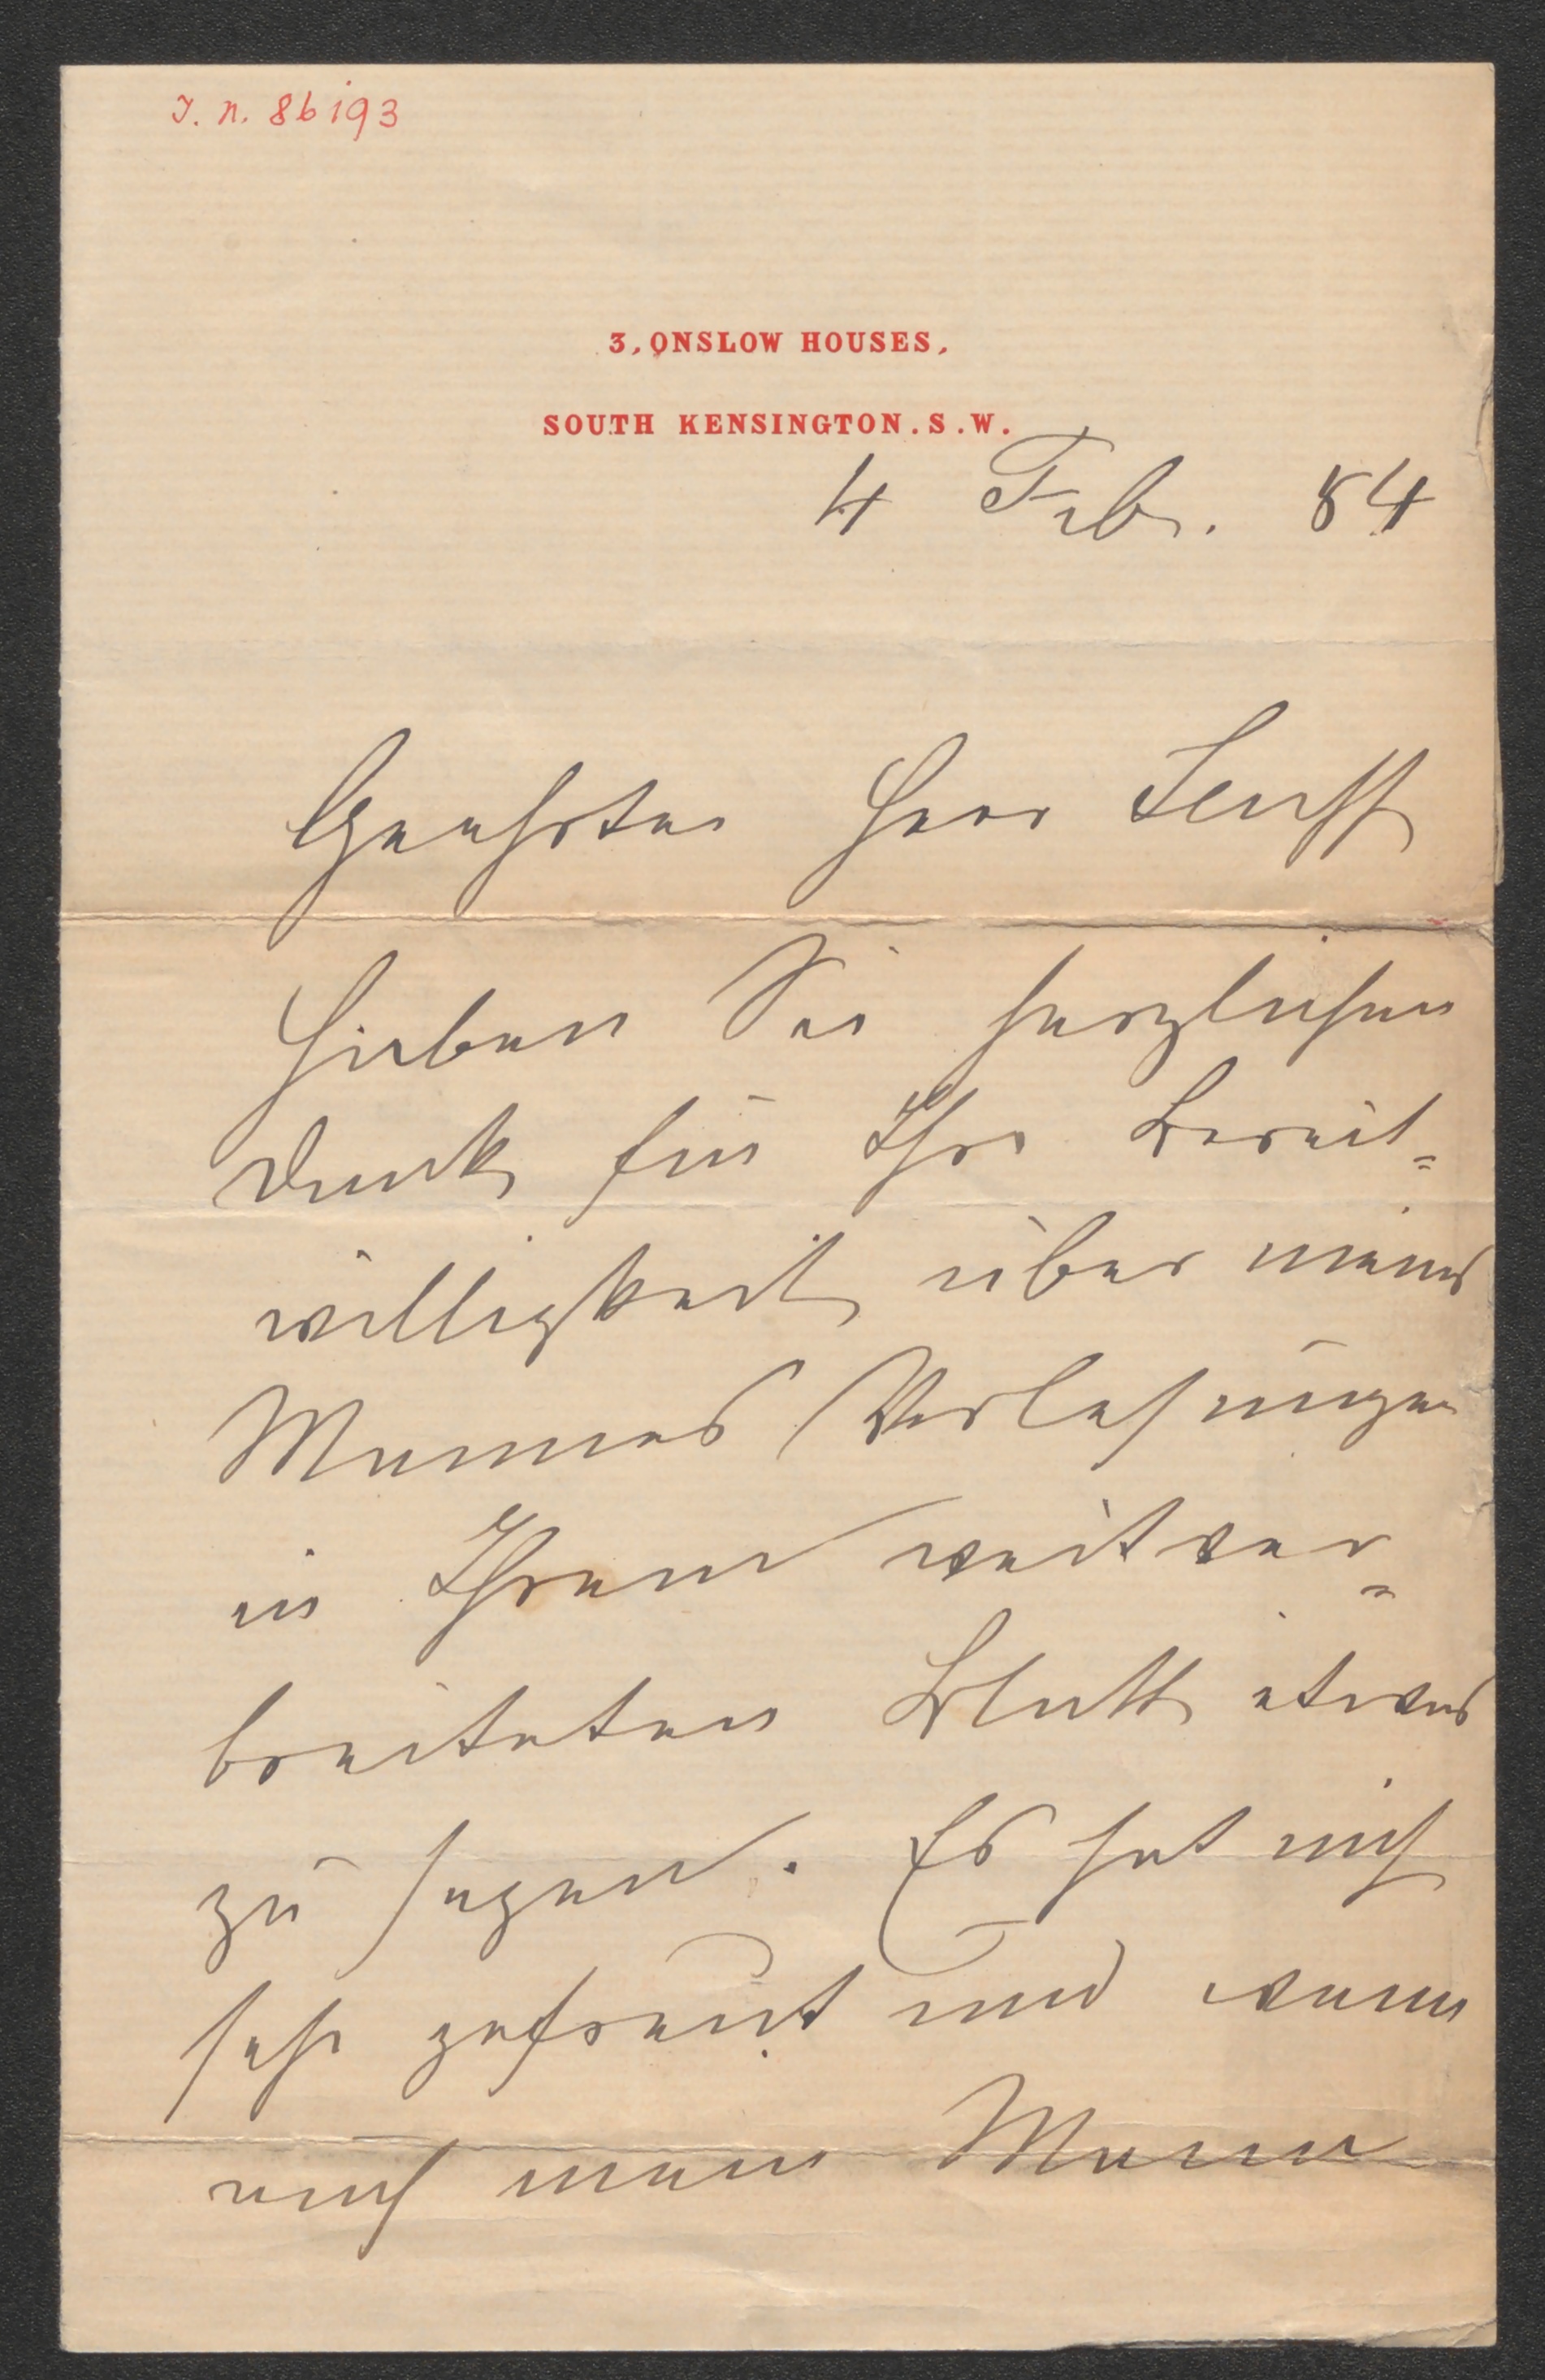 I. N. 86193
3, ONSLOW HOUSES,
SOUTH KENSINGTON. S. W.
4 Feb. 84
Geehrter Herr Senff
Haben Sie herzlichen
Dank für Ihre Bereit=
willigkeit über meines
Mannes Vorlesungen
in Ihrem weitver=
breiteten Blatt etwas
zu sagen. Es hat mich
sehr gefreut und wenn
auch mein Mann